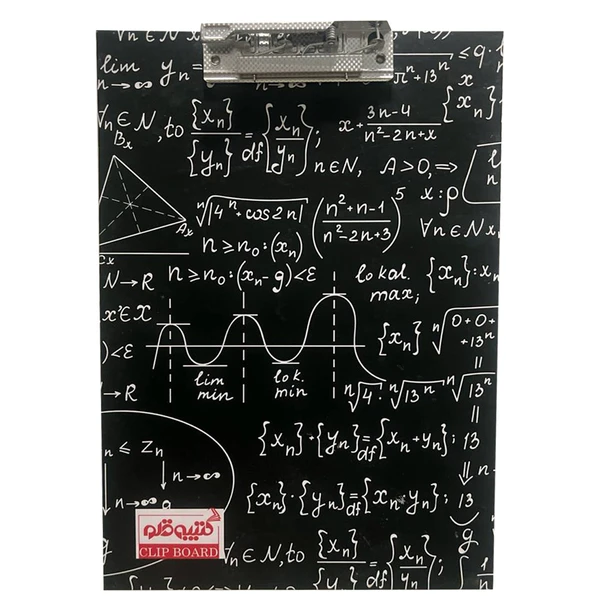 ∀n∈N, {xn
lim yn = n→∞ πⁿ+13ⁿ ≤ q·
n→∞ x
∀n∈N, to {xn}/{yn} =df {xn/yn}; x + (3n-4)/(n²-2n+x) {xn}
Bx n∈N, A>0, ⇒
ⁿ√|4ⁿ+cos2n| ((n²+n-1)/(n²-2n+3))⁵ x:ρ
Ax n≥n₀:(xn) ∀n∈N xn
Cx
N→R n≥n₀:(xn-g)<ε lokal. max; {xn}:xn
x'∈X
{xn} ⁿ√ 0+0+ +13ⁿ
)<ε =
lim min lok. min
→R ⁿ√4 · ⁿ√13ⁿ ⁿ√13ⁿ
=
{xn}+{yn}=df{xn+yn}; 13
n ≤ Zn
n→∞
n→∞ g {xn}·{yn}=df{xn·yn}; 13
کتیبه قلم
CLIP BOARD
g
∀n∈N, to {xn}/{yn} =df {xn/yn};